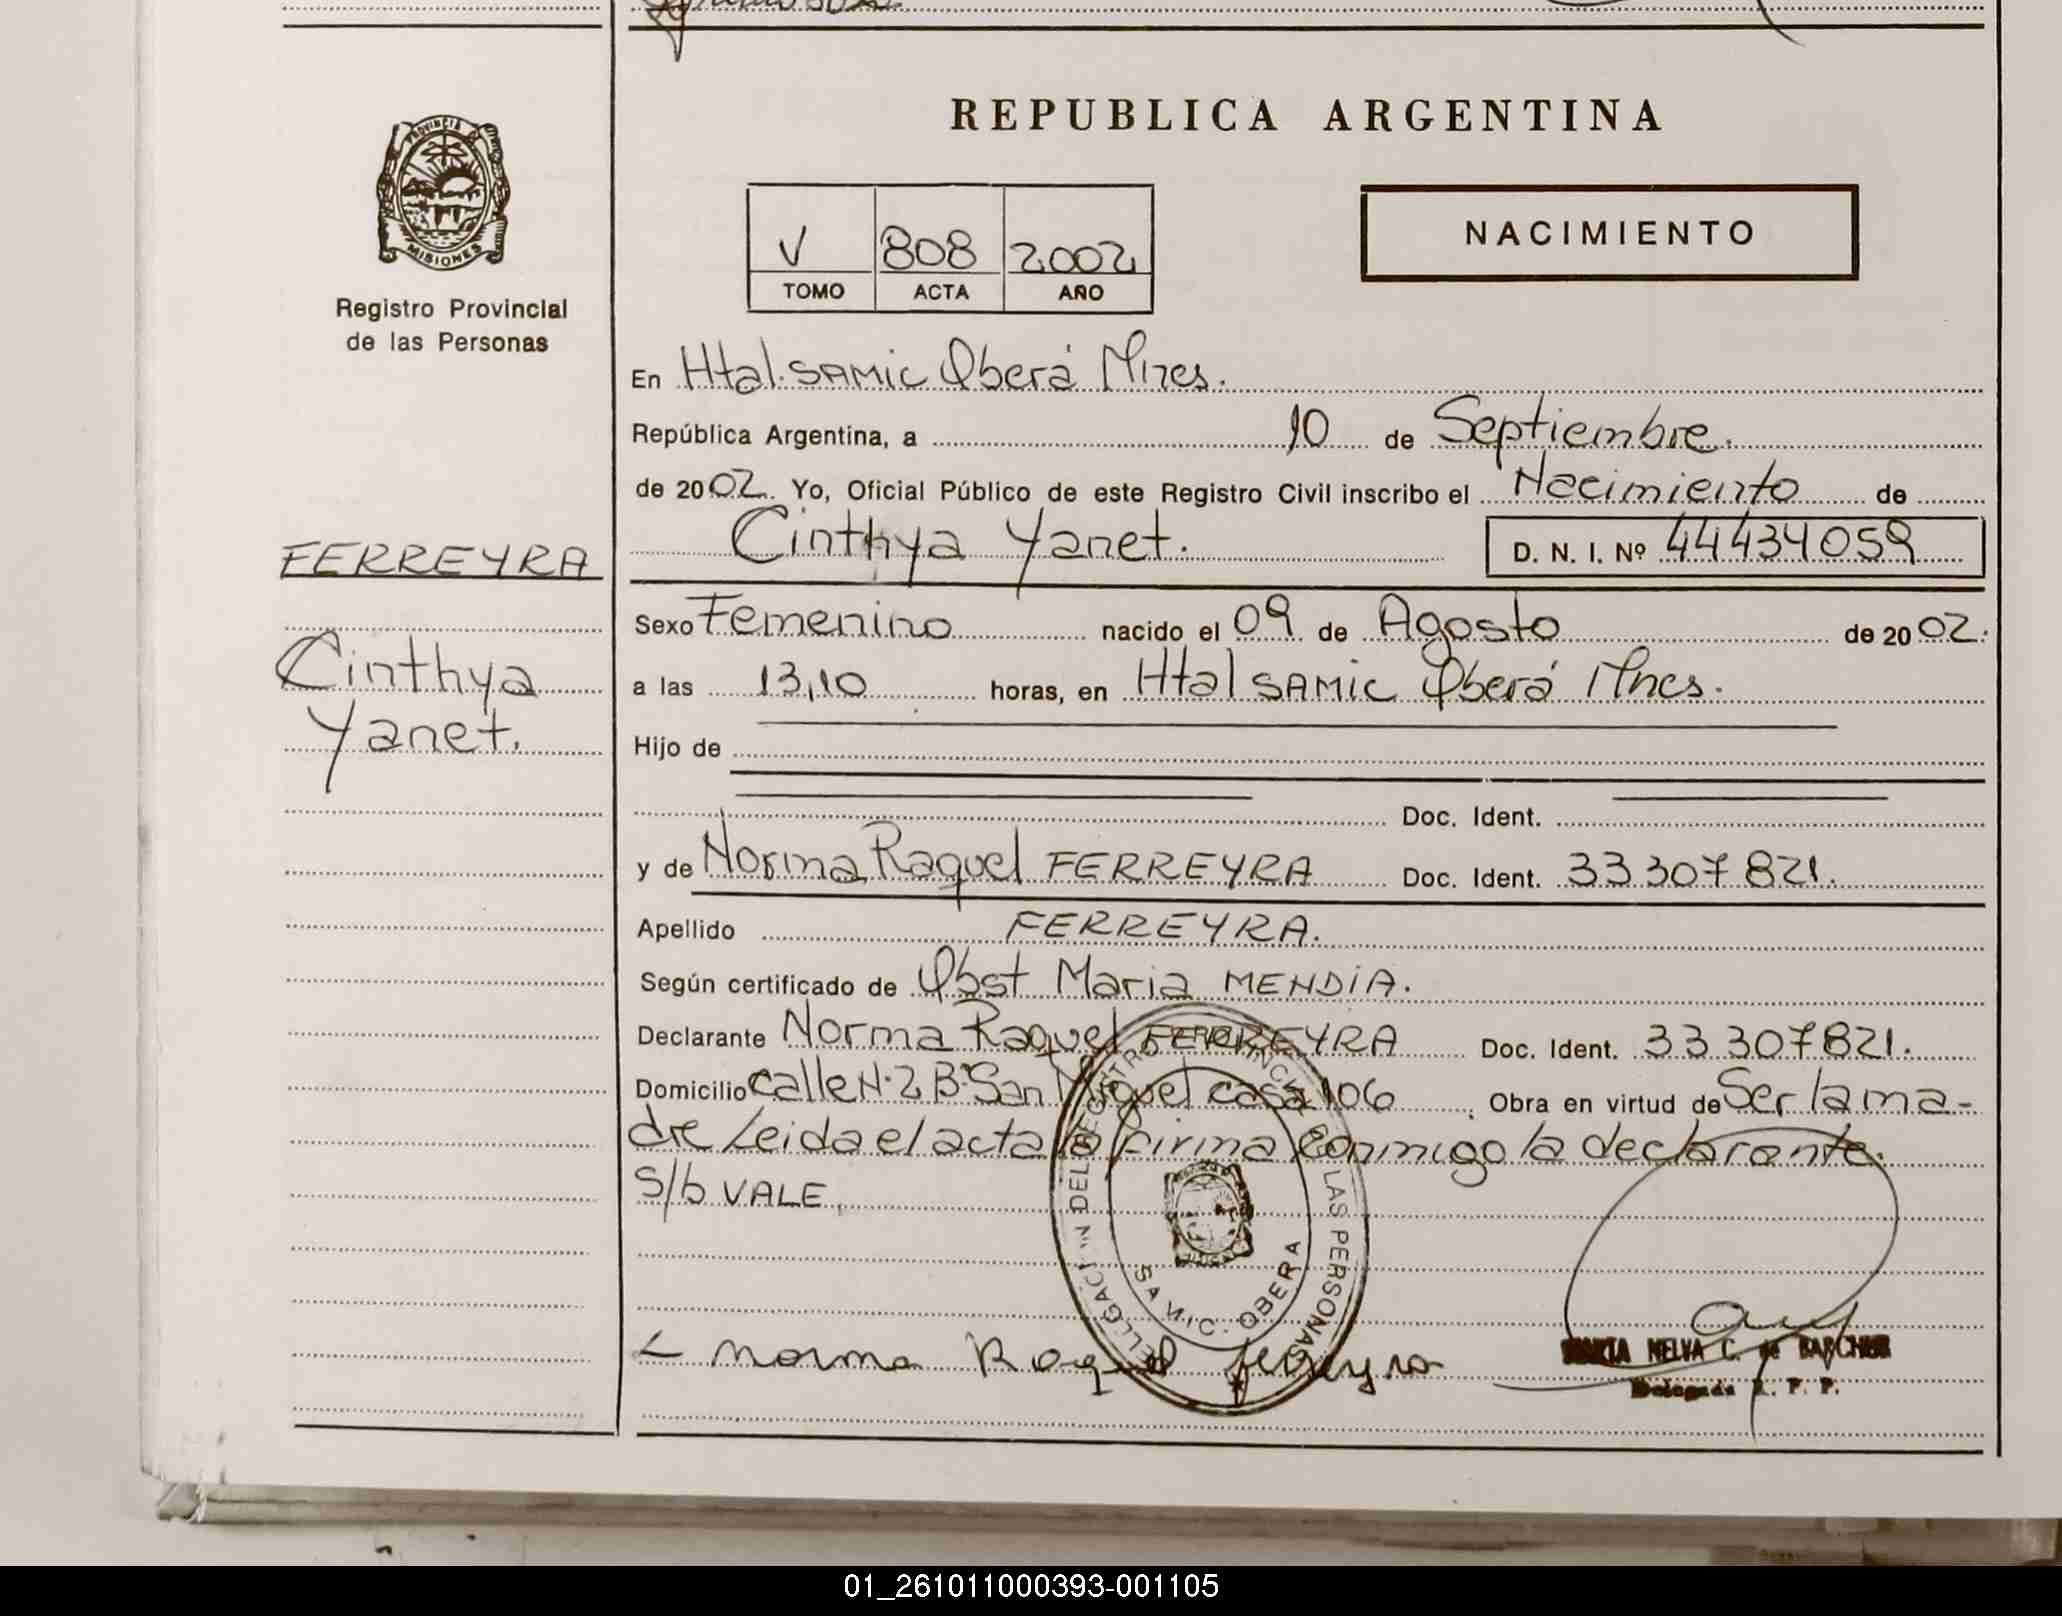 REPUBLICA ARGENTINA
PROVINCIA DE
MISIONES
Registro Provincial
de las Personas
V 808 2002
TOMO ACTA AÑO
NACIMIENTO
En Htal. SAMIC Oberá Mnes.
República Argentina, a 10 de Septiembre.
de 2002. Yo, Oficial Público de este Registro Civil inscribo el Nacimiento de
Cinthya Yanet. D. N. I. Nº 44434059
FERREYRA
Cinthya
Yanet.
Sexo Femenino nacido el 09 de Agosto de 2002.
a las 13,10 horas, en Htal SAMIC Oberá Mnes.
Hijo de
Doc. Ident.
y de Norma Raquel FERREYRA Doc. Ident. 33307821.
Apellido FERREYRA.
Según certificado de Obst Maria MENDIA.
Declarante Norma Raquel FERREYRA Doc. Ident. 33307821.
Domicilio calle N·2 Bº San Miguel casa 106. Obra en virtud de Ser la ma-
dre Leida el acta la firma conmigo la declarante.
S/b VALE
DELEGACION DEL REGISTRO PROVINCIAL DE LAS PERSONAS
SAMIC. OBERA
Norma Raquel ferreyra
NELVA C. de
Delegada R. P. P.
01_261011000393-001105